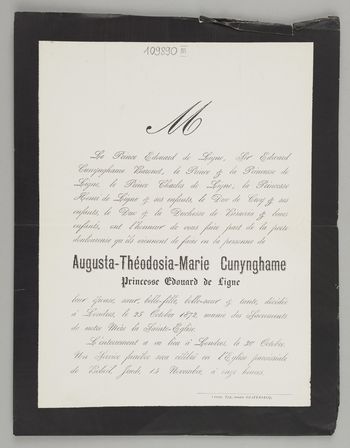 109890 III
M
Le Prince Edouard de Ligne, Sir Edward
Cunynghame Baronet, le Prince & la Princesse de
Ligne, le Prince Charles de Ligne, la Princesse
Henri de Ligne & ses enfants, le Duc de & ses
enfants, le Duc & la Duchesse de & leurs
enfants, ont l'honneur de vous faire part de la perte
douloureuse qu'ils viennent de faire en la personne de
Augusta-Théodosia-Marie Cunynghame
Princesse Edouard de Ligne
leur épouse, sœur, belle-fille, belle-sœur & tante, décédée
à Londres, le 25 Octobre 1872, munie des Sacrements
de notre Mère la Sainte-Eglise.
L'enterrement a eu lieu à Londres, le Octobre.
Un Service funèbre sera célébré en l'Eglise paroissiale
de Belœil, Jeudi, 14 Novembre, à onze heures.